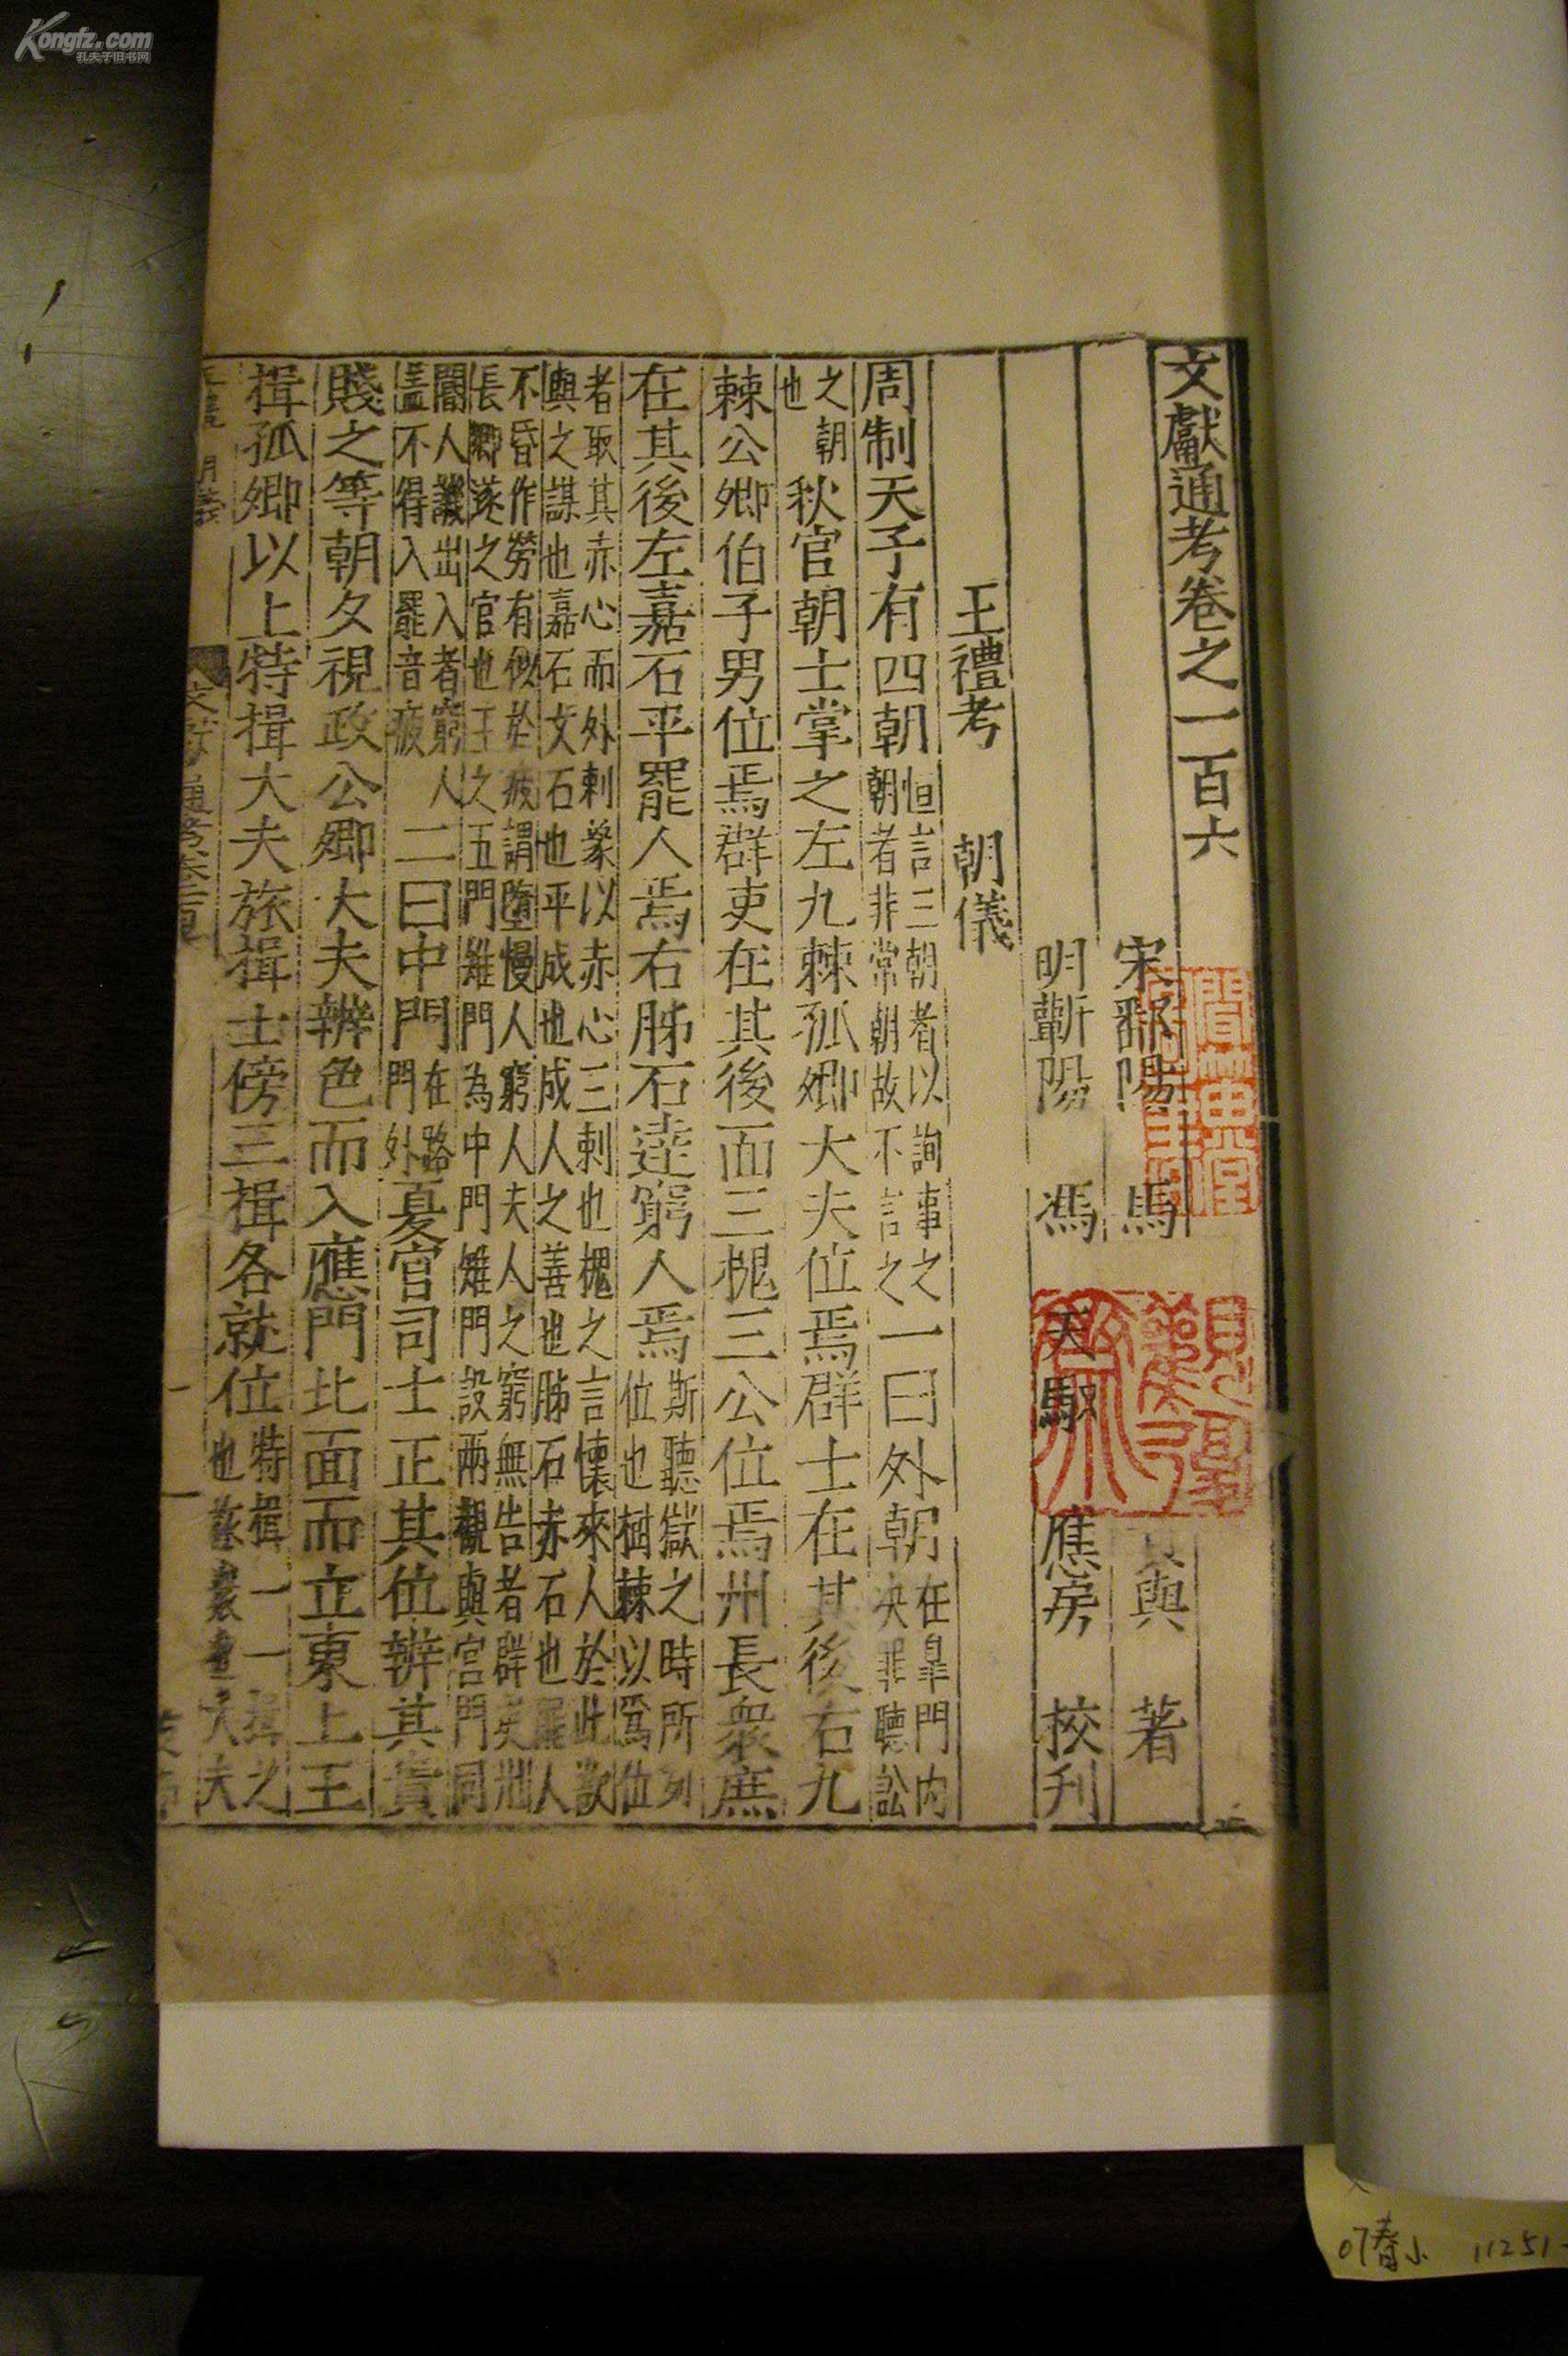 Kongfz.com
孔夫子旧书网
文獻通考卷之一百六
宋鄱陽 馬 與 著
明蘄陽 馮 天馭 應房 挍刋
王禮考 朝儀
周制天子有四朝恒言三朝者以詢事之朝者非常朝故不言之一曰外朝在皐門內决罪聽訟
之朝也秋官朝士掌之左九棘孤卿大夫位焉群士在其後右九
棘公卿伯子男位焉群吏在其後面三槐三公位焉州長衆庶
在其後左嘉石平罷人焉右肺石逹窮人焉斯聽獄之時所列位也樹棘以爲位
者取其赤心而外刺象以赤心三刺也槐之言懷來人於此欲與之謀也嘉石文石也平成也成人之善也肺石赤石也罷人
不昏作勞有似於疲謂墮慢人窮人夫人之窮無告者群吏謂長鄉遂之官也王之五門雉門為中門雉門設兩觀與宫門同
閽人譏出入者窮人盖不得入罷音疲二曰中門在路門外夏官司士正其位辨其貴
賤之等朝夕視政公卿大夫辨色而入應門北面而立東上王
揖孤卿以上特揖大夫旅揖士傍三揖各就位特揖一一揖之也旅衆也大夫
07春小 11251